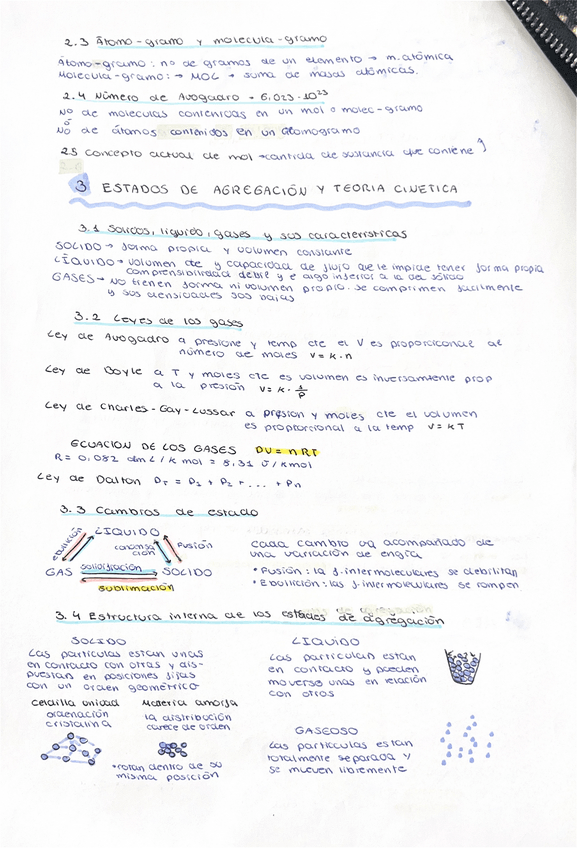 2.3 Átomo-gramo y molecula-gramo
Átomo-gramo: no de gramos de un elemento → m. atómica
Molecula-gramo: → MOL → suma de masas atómicas.
2.4 Número de Avogadro = 6,023·10²³
Nº de moleculas contenidas en un mol o molec-gramo
ó
Nº de átomos contenidos en un atomogramo
2.5 Concepto actual de mol → cantida de sustancia que contiene
3 ESTADOS DE AGREGACIÓN Y TEORIA CINETICA
3.1 Solidos, liquido, gases y sus caracteristicas
SOLIDO → forma propia y volumen constante
LÍQUIDO → volumen cte y capacidad de flujo que le impide tener forma propia
comprensibilidad debil y e algo inferior a la del solido
GASES → No tienen forma ni volumen propio. se comprimen facilmente
y sus densidades sos bajas
3.2 Leyes de los gases
Ley de Avogadro a presione y temp cte el V es proporcional al
número de moles V = K · n
Ley de Boyle a T y moles cte es volumen es inversamnte prop
a la presión V = K · 1/P
Ley de Charles-Gay-Lussar a presion y moles cte el volumen
es proporcional a la temp V = K T
ECUACION DE LOS GASES PV = n RT
R = 0,082 atm L / K mol = 8,31 J / K mol
Ley de Dalton PT = P1 + P2 + ... + Pn
3.3 Cambios de estado
LIQUIDO
ebullición
condensa
ción
fusión
GAS solidifración SOLIDO
sublimación
cada cambio va acompañado de
una variación de engría
• Fusión: la f. intermoleculares se debilitan
• Ebullición: las f. intermoleculares se rompen
3.4 Estructura interna de los estados de agregación
SOLIDO
Las particulas estan unas
en contacto con otras y dis-
puestan en posiciones fijas
con un orden geometrico
Celdilla unidad
ordenación
cristalina
Materia amorfa
la distribución
carece de orden
• rotan dentro de su
misma posición
LIQUIDO
Las particulan estan
en contacto y pueden
moverse unas en relación
con otros
GASEOSO
Las particulas estan
totalmente separada y
se mueven libremente